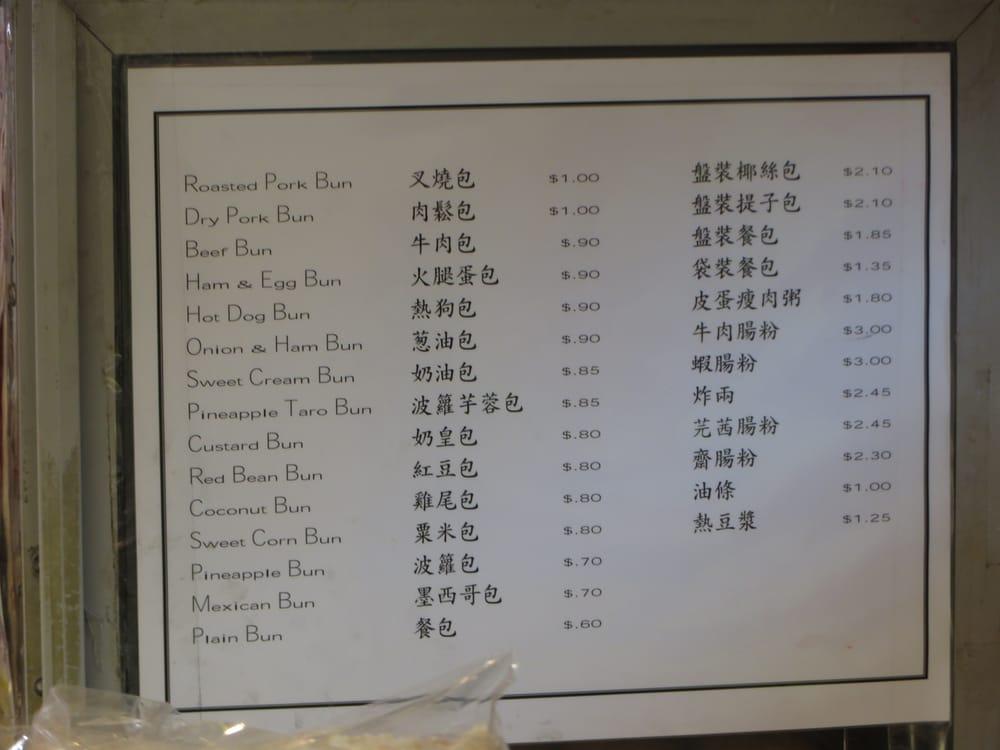 Roasted Pork Bun 叉燒包 $1.00
Dry Pork Bun 肉鬆包 $1.00
Beef Bun 牛肉包 $.90
Ham & Egg Bun 火腿蛋包 $.90
Hot Dog Bun 熱狗包 $.90
Onion & Ham Bun 葱油包 $.90
Sweet Cream Bun 奶油包 $.85
Pineapple Taro Bun 波籮芋蓉包 $.85
Custard Bun 奶皇包 $.80
Red Bean Bun 紅豆包 $.80
Coconut Bun 雞尾包 $.80
Sweet Corn Bun 粟米包 $.80
Pineapple Bun 波籮包 $.70
Mexican Bun 墨西哥包 $.70
Plain Bun 餐包 $.60
盤裝椰絲包 $2.10
盤裝提子包 $2.10
盤裝餐包 $1.85
袋裝餐包 $1.35
皮蛋瘦肉粥 $1.80
牛肉腸粉 $3.00
蝦腸粉 $3.00
炸兩 $2.45
芫茜腸粉 $2.45
齋腸粉 $2.30
油條 $1.00
熱豆漿 $1.25